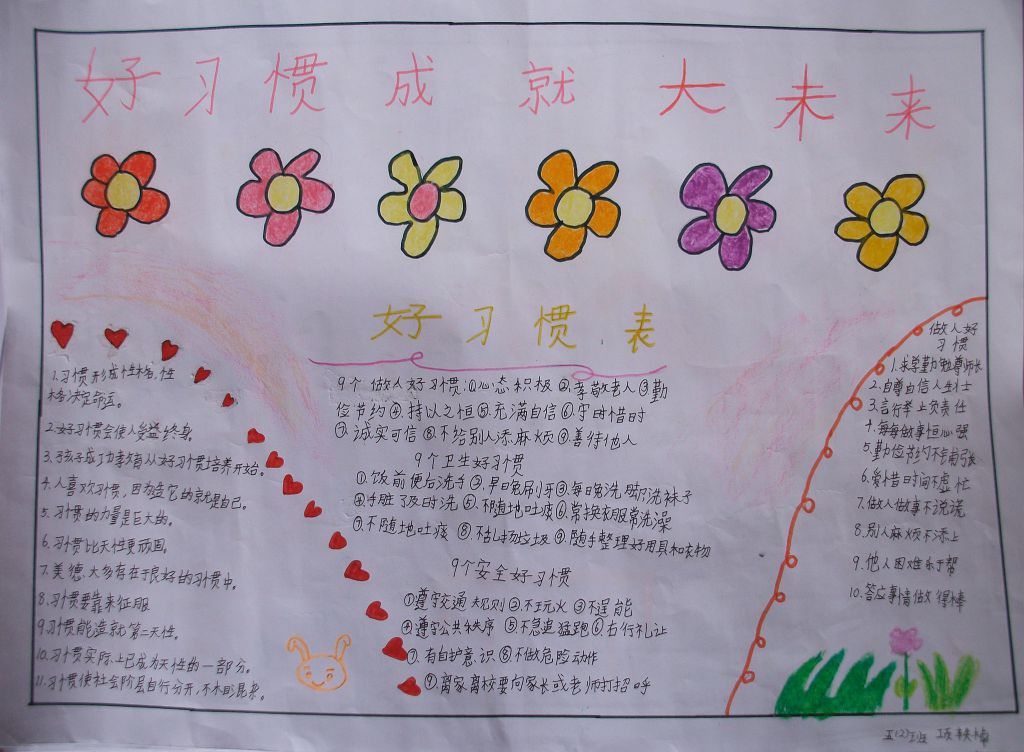 好习惯成就大未来
好习惯表
1.习惯形成性格,性
格决定命运。
2.好习惯会使人受益终身。
3.孩子成功教育从好习惯培养开始。
4.人喜欢习惯,因为造它的就是自己。
5.习惯的力量是巨大的。
6.习惯比天性更顽固。
7.美德大多存在于良好的习惯中。
8.习惯要靠来征服
9.习惯能造就第二天性。
10.习惯实际上已成为天性的一部分。
11.习惯使社会阶层自行分开,不
9个做人好习惯:①心态积极②孝敬老人③勤
俭节约④持以之恒⑤充满自信⑥守时惜时
⑦诚实可信⑧不给别人添麻烦⑨善待他人
9个卫生好习惯
①饭前便后洗手②早晚刷牙③每晚洗脚洗袜子
④手脏了及时洗⑤不随地吐痰⑥常换衣服常洗澡
⑦不随地吐痰⑧不乱扔垃圾⑨随手整理好用具和衣物
9个安全好习惯
①遵守交通规则②不玩火③不逞能
④遵守公共秩序⑤不急追猛跑⑥右行礼让
⑦有自护意识⑧不做危险动作
⑨离家离校要向家长或老师打招呼
做人好
习惯
1.求学勤勉尊师长
2.自尊自信人生士
3.言行举止负责任
4.每每做事恒心强
5.勤俭节约不
6.爱惜时间不虚忙
7.做人做事不说谎
8.别人麻烦不添上
9.他人困难乐于帮
10.答应事情做得棒
五(2)班 项